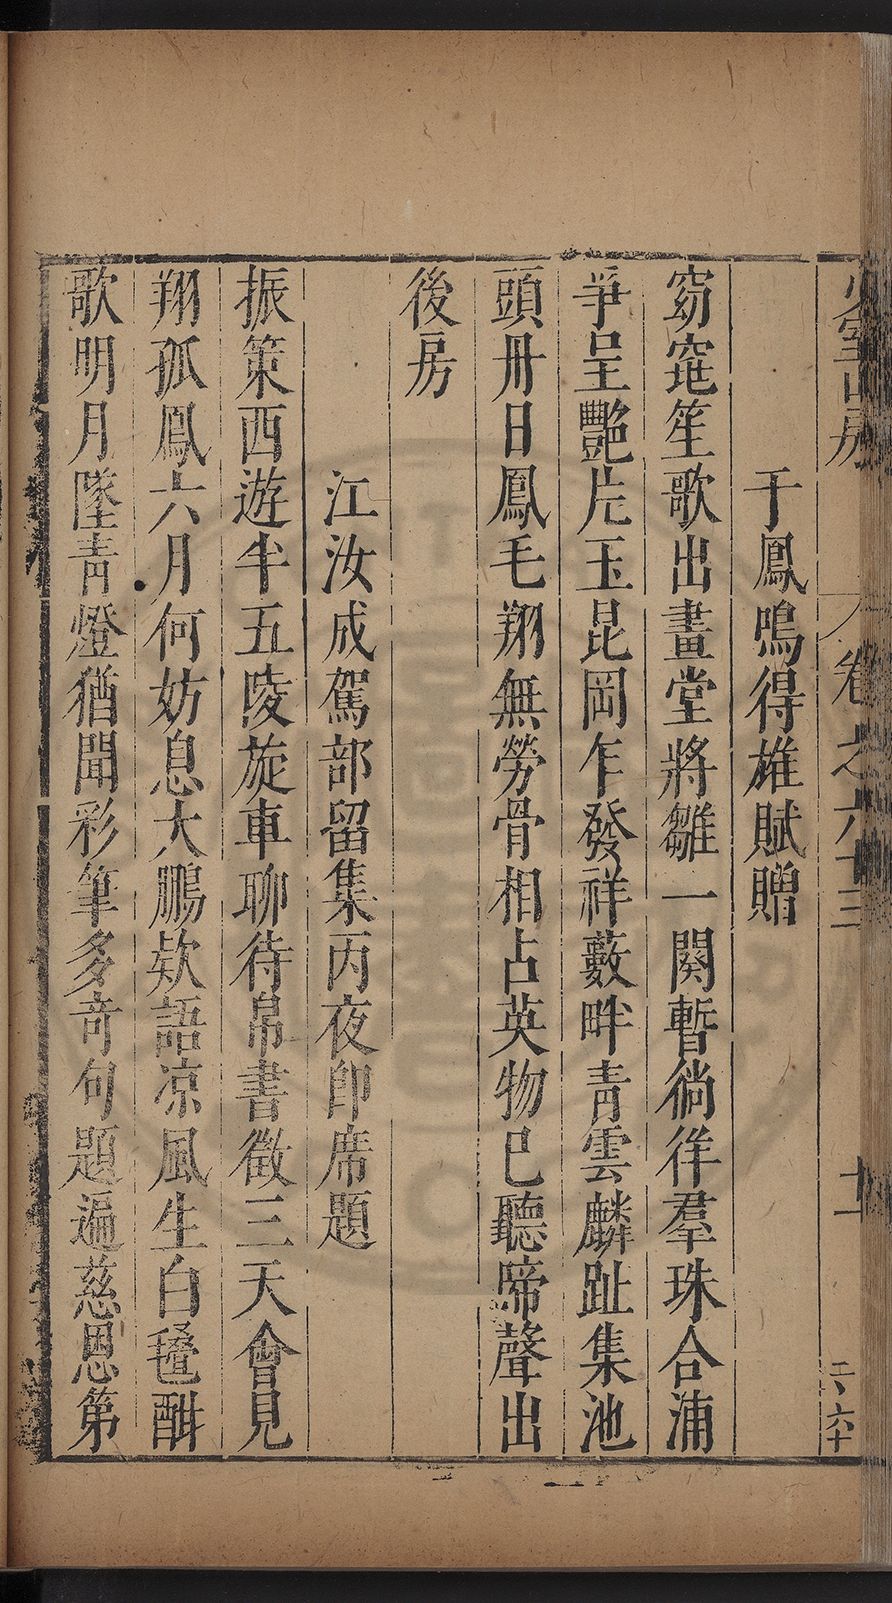 少室山房 卷之六十三 十一 二六十
于鳳鳴得雄賦贈
窈窕笙歌出畫堂將雛一闋暫徜徉羣珠合浦
爭呈艷片玉昆岡乍發祥藪畔青雲麟趾集池
頭丹日鳳毛翔無勞骨相占英物已聽啼聲出
後房
江汝成駕部留集丙夜卽席題
振策西遊半五陵旋車聊待帛書徵三天會見
翔孤鳳六月何妨息大鵬欵語凉風生白㲲酣
歌明月墜青燈猶聞彩筆多奇句題遍慈恩第